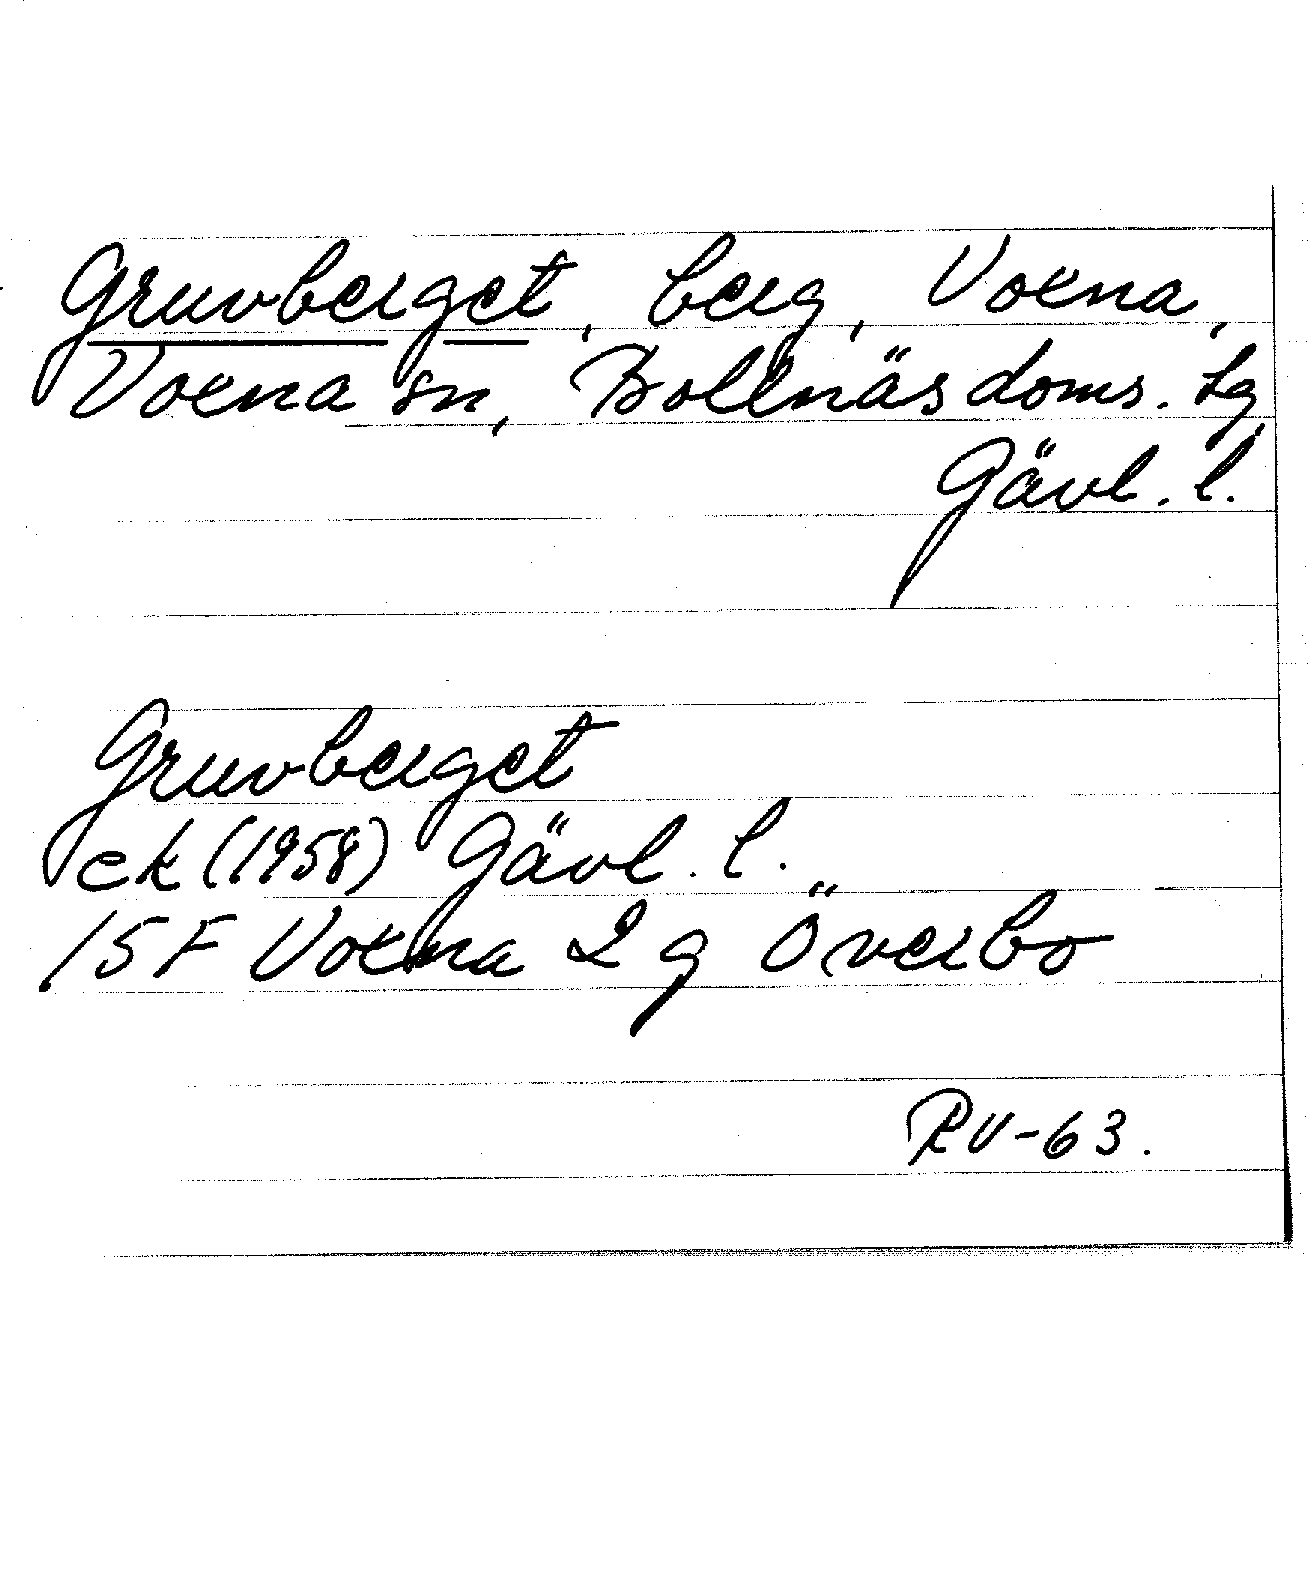 Gruvberget, berg, Voxna,
Voxna sn, Bollnäs doms. lg,
Gävl. l.
Gruvberget
ek (1958) Gävl. l.
15F Voxna 2 g Överbo
RV-63.